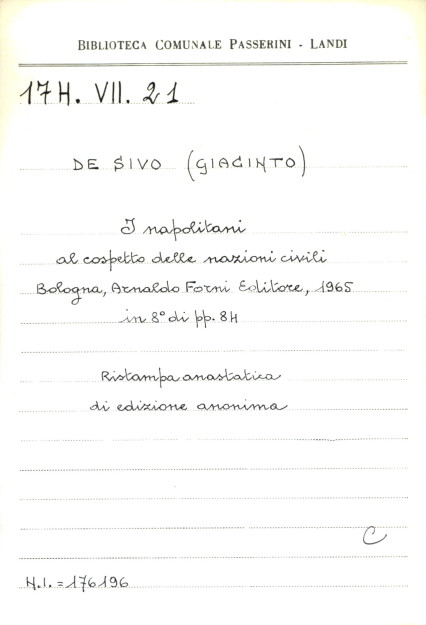 BIBLIOTECA COMUNALE PASSERINI - LANDI
17H. VII. 21
DE SIVO (GIACINTO)
I napolitani
al cospetto delle nazioni civili
Bologna, Arnaldo Forni Editore, 1965
in 8° di pp. 84
Ristampa anastatica
di edizione anonima
C
N.I. = 176196